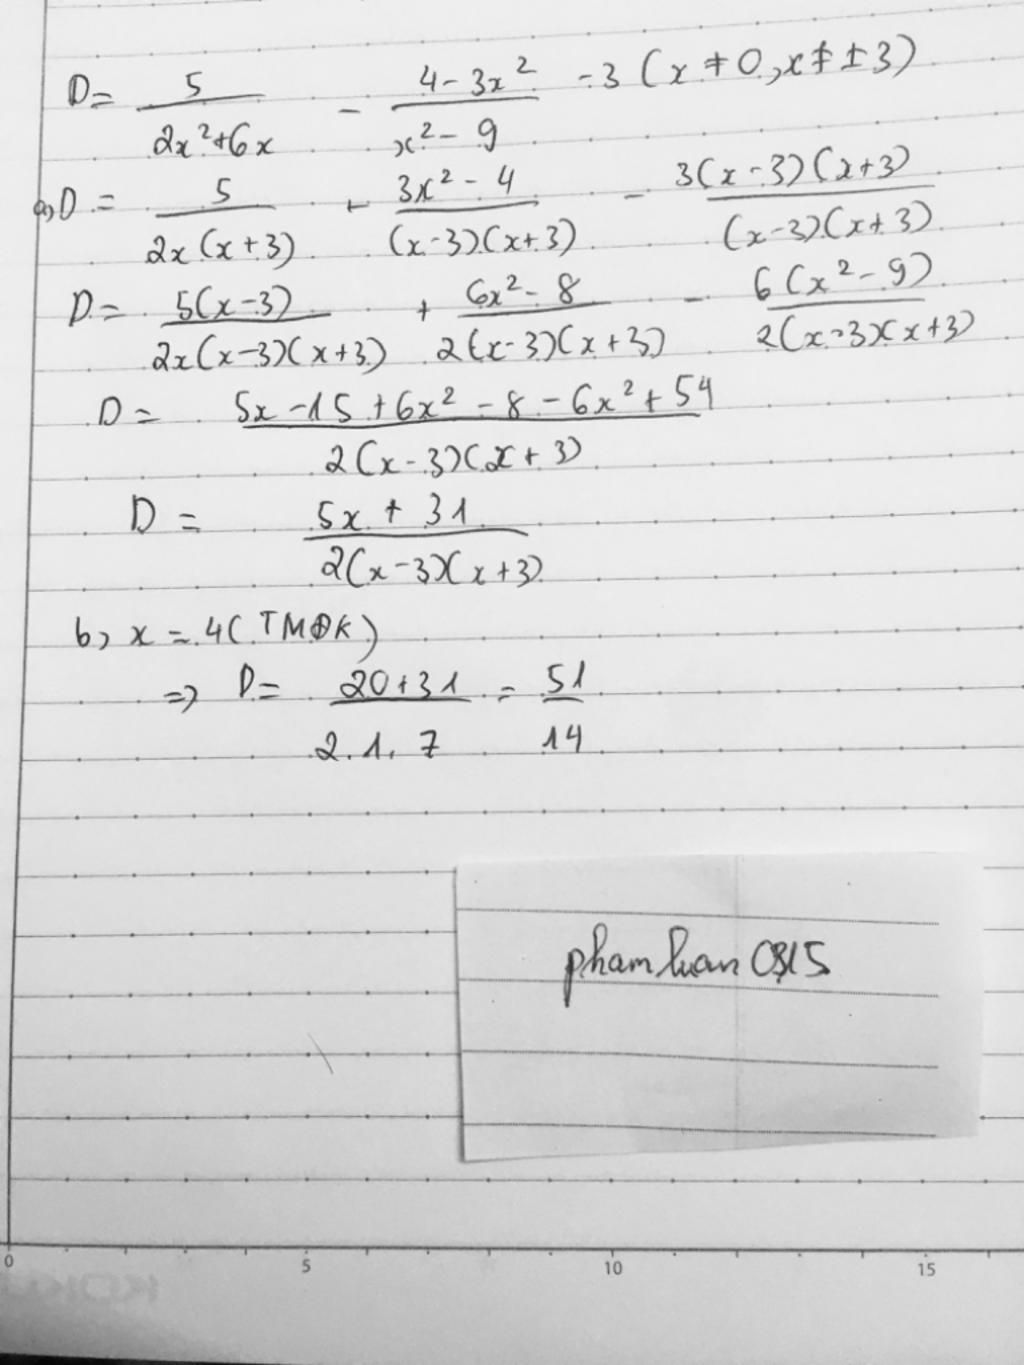 D = 5/(2x²+6x) - (4-3x²)/(x²-9) - 3 (x ≠ 0, x ≠ ±3)
a, D = 5/(2x(x+3)) + (3x²-4)/((x-3)(x+3)) - 3(x-3)(x+3)/((x-3)(x+3))
D = 5(x-3)/(2x(x-3)(x+3)) + (6x²-8)/(2(x-3)(x+3)) - 6(x²-9)/(2(x-3)(x+3))
D = (5x-15+6x²-8-6x²+54)/(2(x-3)(x+3))
D = (5x+31)/(2(x-3)(x+3))
b, x = 4 (TMĐK)
=> D = (20+31)/(2.1.7) = 51/14
phamluan0315
0 5 10 15